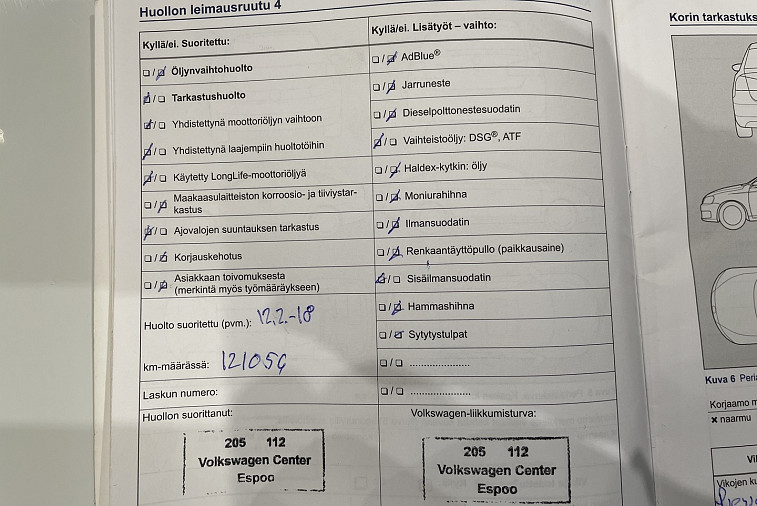 Huollon leimausruutu 4
Kyllä/ei. Suoritettu:
Öljynvaihtohuolto
Tarkastushuolto
Yhdistettynä moottoriöljyn vaihtoon
Yhdistettynä laajempiin huoltotöihin
Käytetty LongLife-moottoriöljyä
Maakaasulaitteiston korroosio- ja tiiviystar-
kastus
Ajovalojen suuntauksen tarkastus
Korjauskehotus
Asiakkaan toivomuksesta
(merkintä myös työmääräykseen)
Huolto suoritettu (pvm.): 12.2.-18
km-määrässä: 121054
Laskun numero:
Huollon suorittanut:
205 112
Volkswagen Center
Espoo
Kyllä/ei. Lisätyöt – vaihto:
AdBlue®
Jarruneste
Dieselpolttonestesuodatin
Vaihteistoöljy: DSG®, ATF
Haldex-kytkin: öljy
Moniurahihna
Ilmansuodatin
Renkaantäyttöpullo (paikkausaine)
Sisäilmansuodatin
Hammashihna
Sytytystulpat
Volkswagen-liikkumisturva:
205 112
Volkswagen Center
Espoo
Korin tarkastuks
Kuva 6 Peri
Korjaamo m
x naarmu
Vi
Vikojen ku